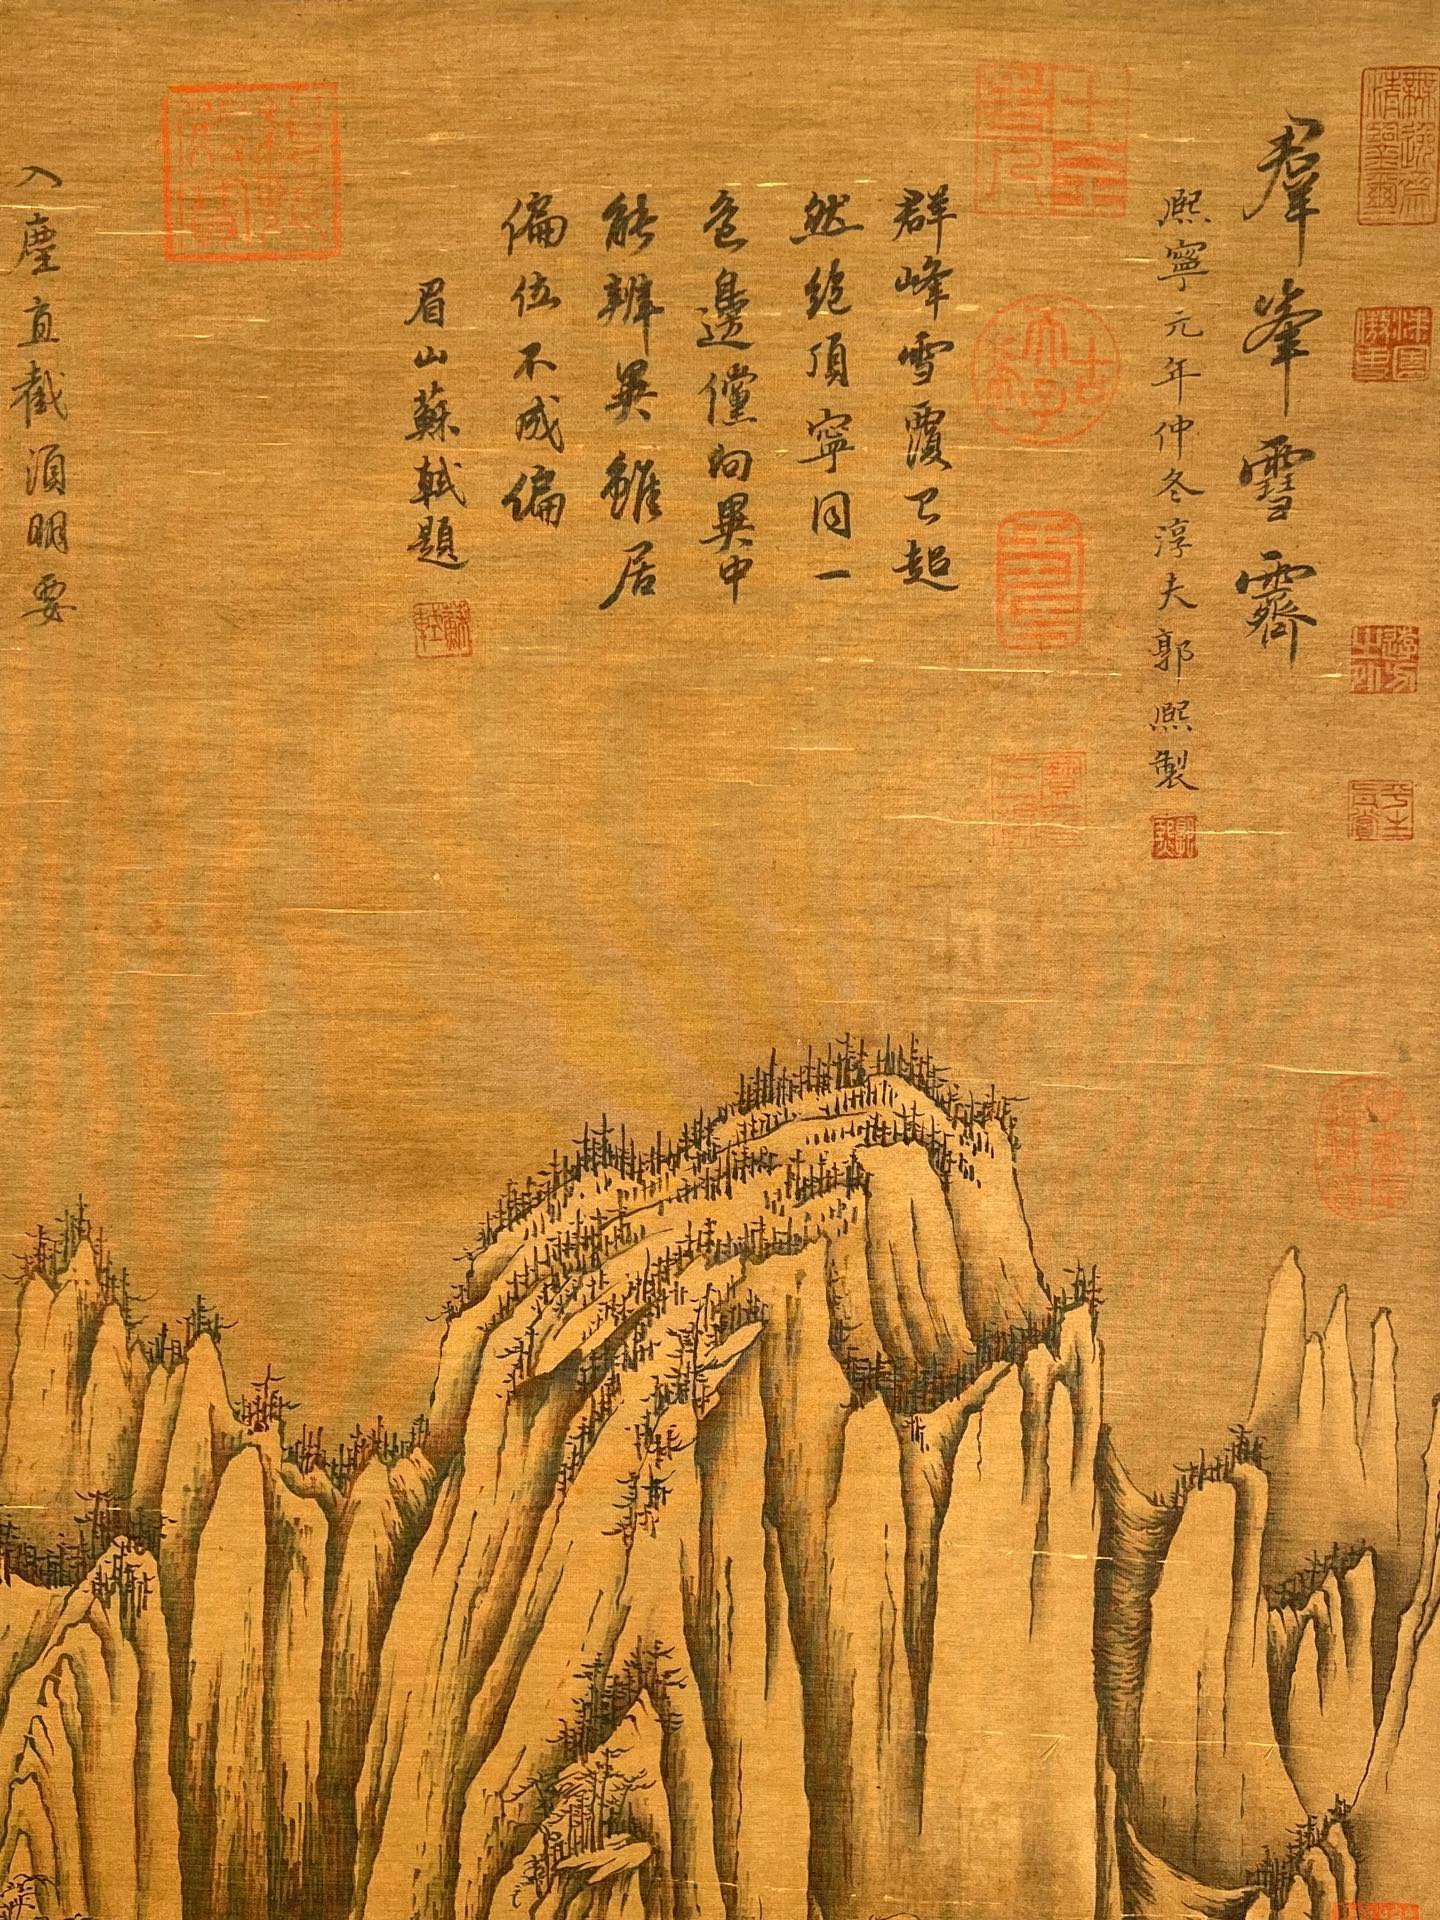 羣峯雪霽
熙寧元年仲冬淳夫郭熙製
群峰雪覆已超
然絶頂寧同一
色邊儻向異中
能辨異雖居
偏位不成偏
眉山蘇軾題
蘇軾
入塵直截須明要
古希天子